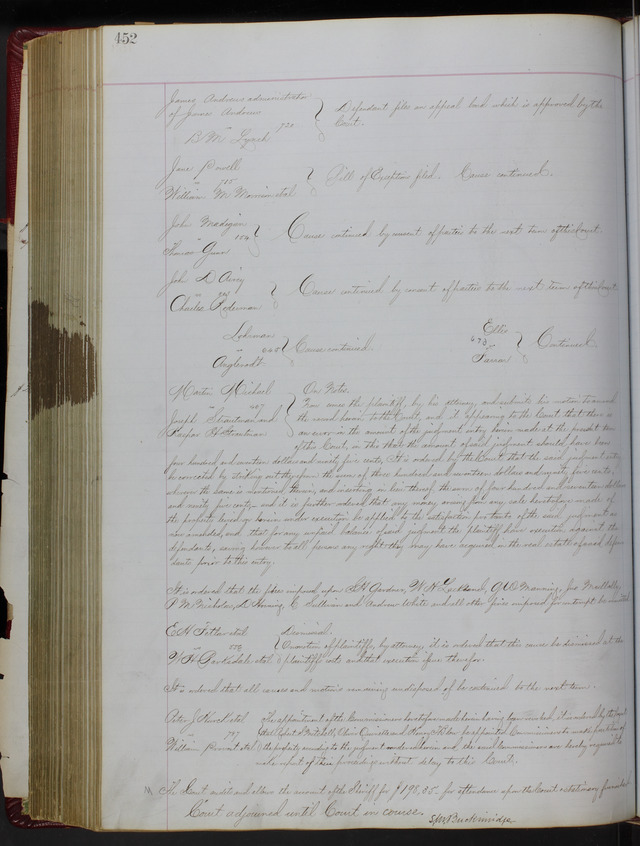 452
James Andrews administrator
of James Andrews
vs 720
B M Lynch
Defendant files an appeal bond which is approved by the
Court.
Jane Powell
vs 715
William M
Bill of Exceptions filed. Cause continued.
John Madigan
vs 104
Thomas Gunn
Cause continued by consent of parties to the next term of this Court.
John D
vs
Charles Rodeman
Cause continued by consent of parties to the next term of this Court.
Lohman
vs 665
Cause continued.
Ellis
673 vs
Farrar
Continued
Martin Michael
vs 467
Joseph Stratman and
H Stratman
On Notes.
Now comes the plaintiff, by his attorney, and submits his motion to amend
the record herein to the Court, and it appearing to the Court that there is
an error in the amount of the judgment entry herein made at the present term
of this Court, in this that the amount of said judgment should have been
four hundred and seventeen dollars and ninety five cents, It is ordered by the Court that the said judgment entry
be corrected by striking out therefrom the sum of three hundred and seventeen dollars and ninety five cents,
wherever the same is mentioned therein, and inserting in lieu thereof the sum of four hundred and seventeen dollars
and ninety five cents, and it is further ordered that any money arising from any sale heretofore made of
the property levied on herein under execution be applied to the satisfaction pro tanto of the said judgment as
now amended, and that for any unpaid balance of said judgment the plaintiff have execution against the
defendants, saving however to all persons any rights they may have acquired in the real estate of said defen
dants prior to this entry.
It is ordered that the fines imposed upon S H Gardner, W H Lackland, Manning, Jno
P M Nicholas, D C Sullivan and Andrew White and all other fines imposed for contempt be remitted
E H et al
vs 556
W H Barksdale et al
Dismissal.
On motion of plaintiffs, by attorney, it is ordered that this cause be dismissed at the
plaintiffs costs and that execution issue therefor.
It is ordered that all causes and motions remaining undisposed of be continued to the next term.
Peter J et al
vs 797
William et al
The appointment of the Commissioners heretofore made herein having been revoked, it is ordered by the Court
that Robert A Mitchell, and Henry be appointed Commissioners to make partition of
the property according to the judgment rendered herein and the said Commissioners are hereby required to
make report of their proceedings without delay to this Court.
The Court audits and allows the account of the Sheriff for $198.05 for attendance upon the Court & stationery furnished
Court adjourned until Court in course.
S M Breckinridge